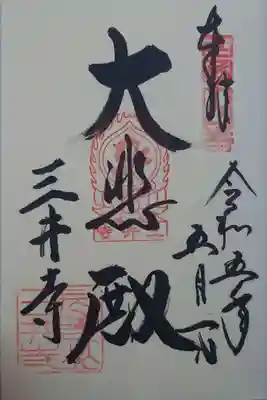 奉拝
令和五年
五月一日
大悲殿
三井寺